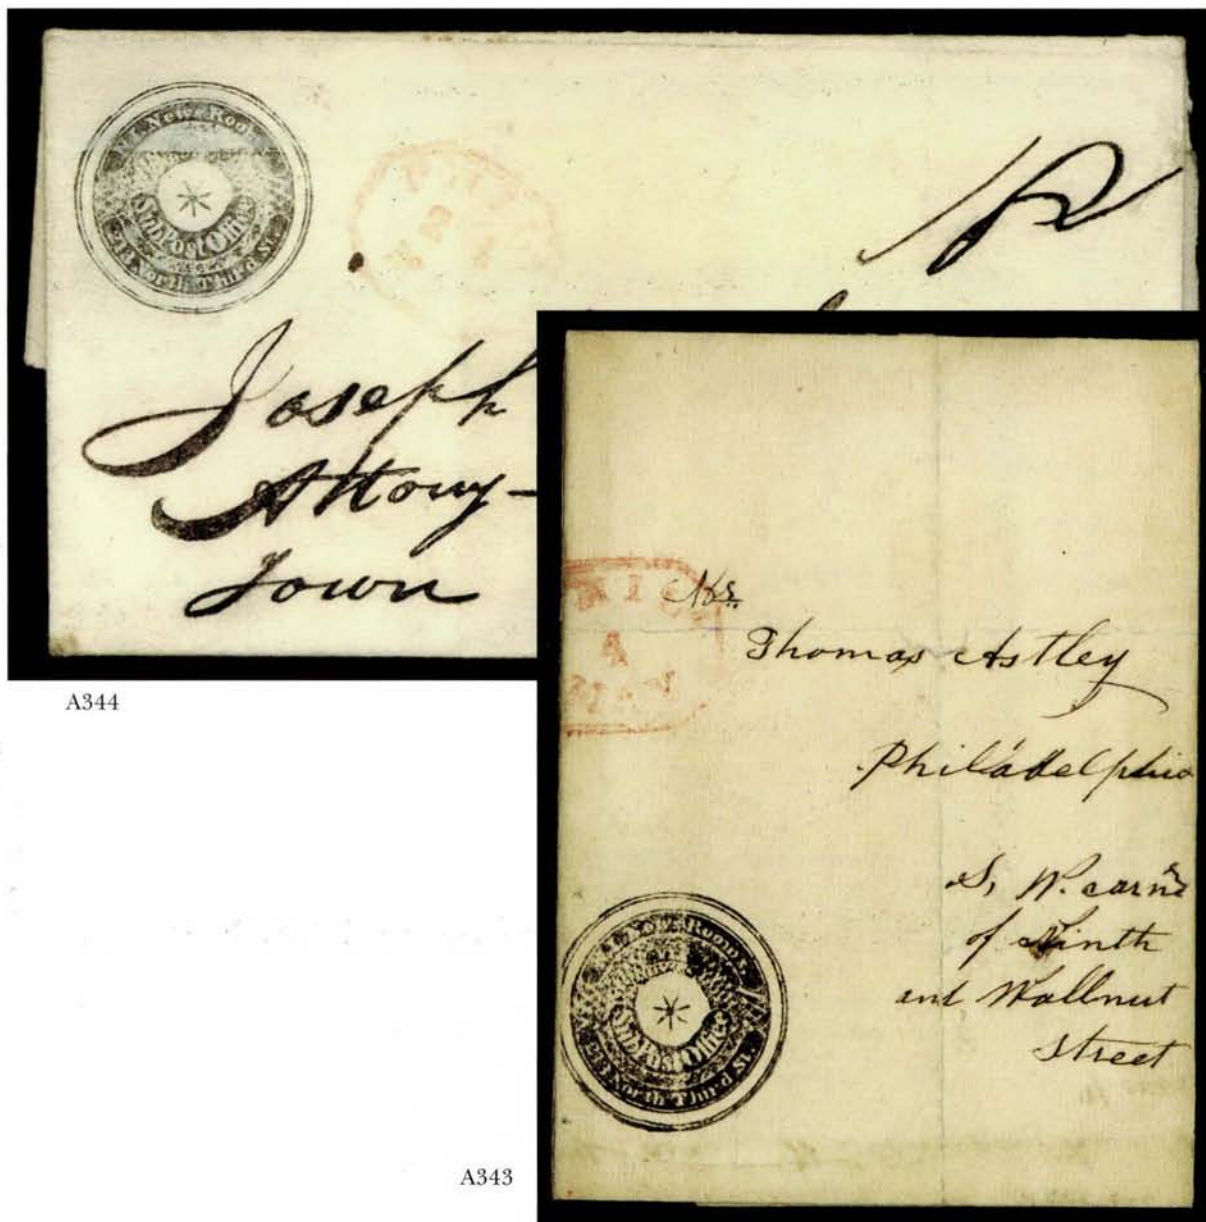 News Room
Sub Post Office
243 North Third St.
Joseph
Attony-
Town
A344
Mr.
4
Thomas Astley
Philadelphia
S, W. carnr
of Ninth
and Wallnut
street
News Rooms
Sub Post Office
243 North Third St.
A343